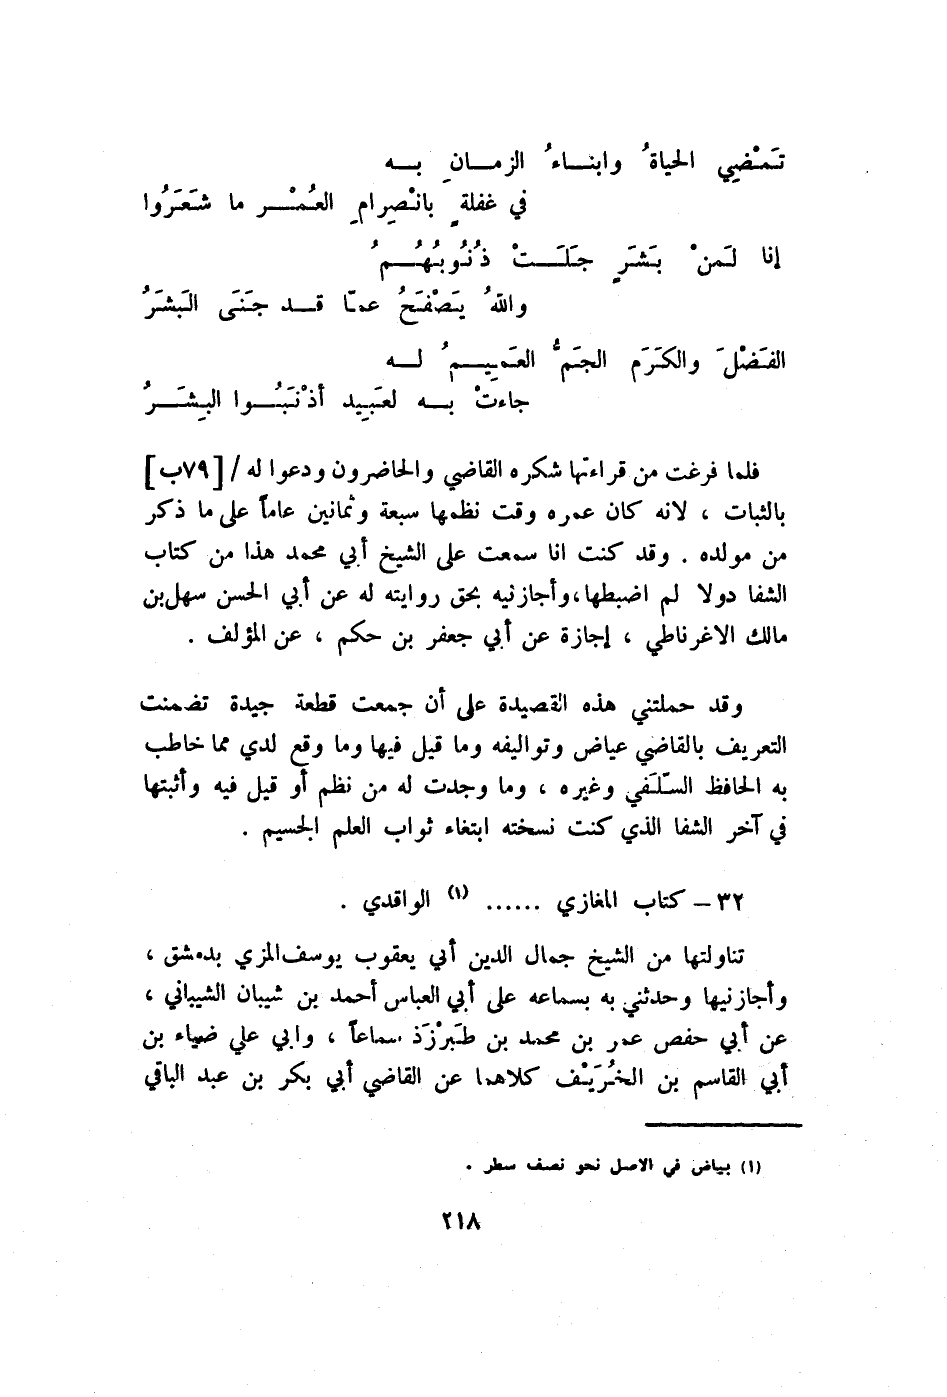 تَمْضِي الحياةُ وابناءُ الزمانِ به
في غفلةٍ بانْصِرامِ العُمْرِ ما شَعَرُوا
إنا لَمنْ بَشَرٍ جَلَتْ ذُنُوبُهُمُ
واللهُ يَصْفَحُ عمّا قد جَنَى البَشَرُ
الفَضْلَ والكَرَم الجَمُّ العَمِيمُ له
جاءتْ به لعَبِيد أذْنَبُوا البِشَرُ
فلما فرغت من قراءتها شكره القاضي والحاضرون ودعوا له / [٧٩ب]
بالثبات ، لانه كان عمره وقت نظمها سبعة وثمانين عاماً على ما ذكر
من مولده . وقد كنت انا سمعت على الشيخ أبي محمد هذا من كتاب
الشفا دولا لم اضبطها،وأجازنيه بحق روايته له عن أبي الحسن سهل بن
مالك الاغرناطي ، إجازة عن أبي جعفر بن حكم ، عن المؤلف .
وقد حملتني هذه القصيدة على أن جمعت قطعة جيدة تضمنت
التعريف بالقاضي عياض وتواليفه وما قيل فيها وما وقع لدي مما خاطب
به الحافظ السّلَفي وغيره ، وما وجدت له من نظم أو قيل فيه وأثبتها
في آخر الشفا الذي كنت نسخته ابتغاء ثواب العلم الجسيم .
٣٢ – كتاب المغازي ...... (١) الواقدي .
تناولتها من الشيخ جمال الدين أبي يعقوب يوسف المزي بدمشق ،
وأجازنيها وحدثني به بسماعه على أبي العباس أحمد بن شيبان الشيباني ،
عن أبي حفص عمر بن محمد بن طَبَرْزَذ سماعاً ، وابي علي ضياء بن
أبي القاسم بن الخُرَيْف كلاهما عن القاضي أبي بكر بن عبد الباقي
(١) بياض في الاصل نحو نصف سطر .
٢١٨